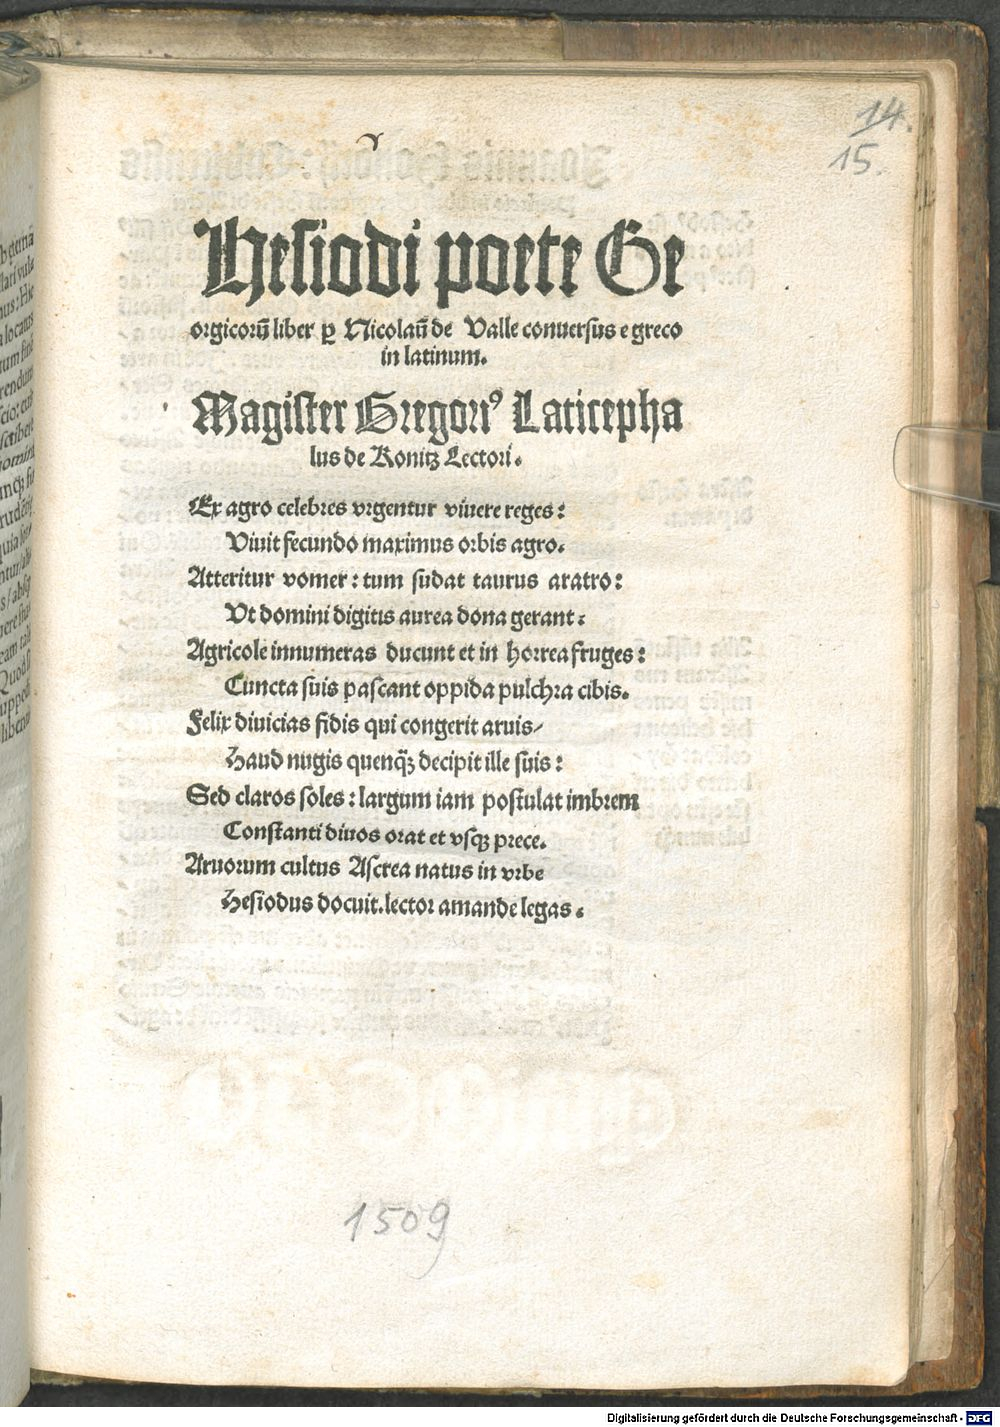 14.
15.
Hesiodi poete Ge
orgicorū liber ꝑ Nicolaū de Valle conuersus e greco
in latinum.
Magister Gregoriꝰ Laticepha
lus de Konitz Lectori.
Ex agro celebres vrgentur viuere reges:
Viuit fecundo maximus orbis agro.
Atteritur vomer: tum sudat taurus aratro:
Vt domini digitis aurea dona gerant.
Agricole innumeras ducunt et in horrea fruges:
Cuncta suis pascant oppida pulchra cibis.
Felix diuicias fidis qui congerit aruis/
Haud nugis quenqꝫ decipit ille suis:
Sed claros soles: largum iam postulat imbrem
Constanti diuos orat et vsqꝫ prece.
Aruorum cultus Ascrea natus in vrbe
Hesiodus docuit. lector amande legas.
1509
Digitalisierung gefördert durch die Deutsche Forschungsgemeinschaft - DFG